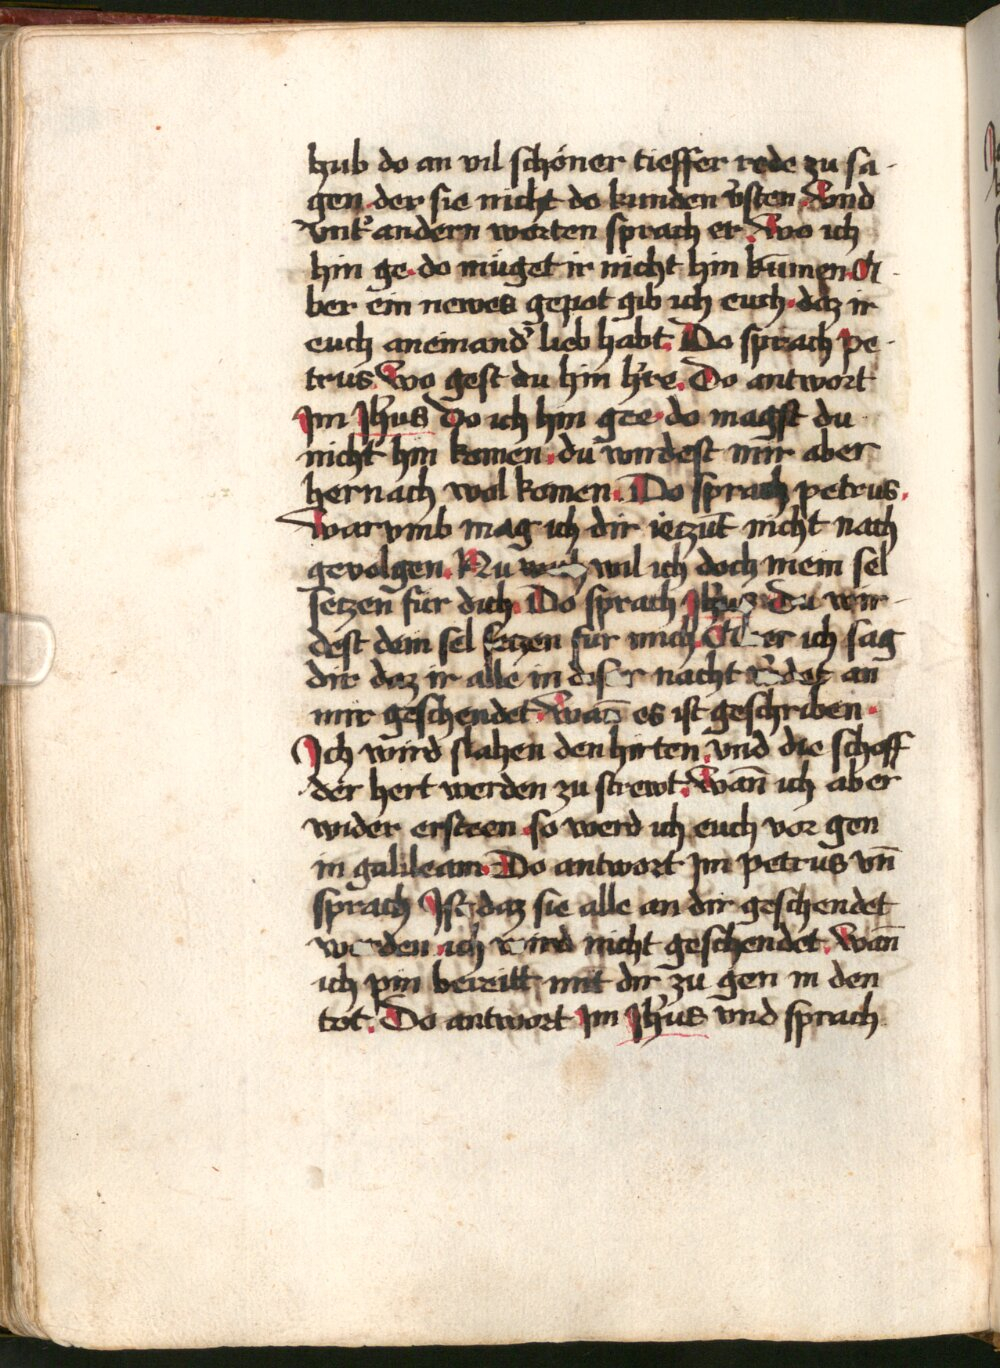 hub do an vil schöner tieffer rede zu sa-
gen der sie nicht do kunden v̉sten. Vnd
vnt̉ andern worten sprach er. Wo ich
hin ge. do müget ir nicht hin kumen. A-
ber ein newes gepot gib ich euch. daz ir
euch aneinand̉ lieb habt. Do sprach pe-
trus. Wo gest du hin h̉re. Do antwort
Im Jh̉us Do ich hin gee. do magst du
nicht hin komen. du wirdest mir aber
hernach wol komen. Do sprach petrus.
Warvmb mag ich dir ietzūt nicht nach
gevolgen. Nu wil ich doch mein sel
setzen für dich. Do sprach Jh̉us Du wir-
dest dein sel setzen für mich. Aber ich sag
dir daz ir alle in diser nacht an
mir geschendet. Wan̄ es ist geschriben.
Ich wird slahen den hirten. vnd die schoff
der hert werden zu strewt. Wan̄ ich aber
wider ersteen so werd ich euch vor gen
in galileam. Do antwort Im petrus vn̄
sprach Ist daz sie alle an dir geschendet
werden ich wird nicht geschendet. Wan̄
ich pin bereitt mit dir zu gen in den
tot. Do antwort Im Jh̉us vnd sprach